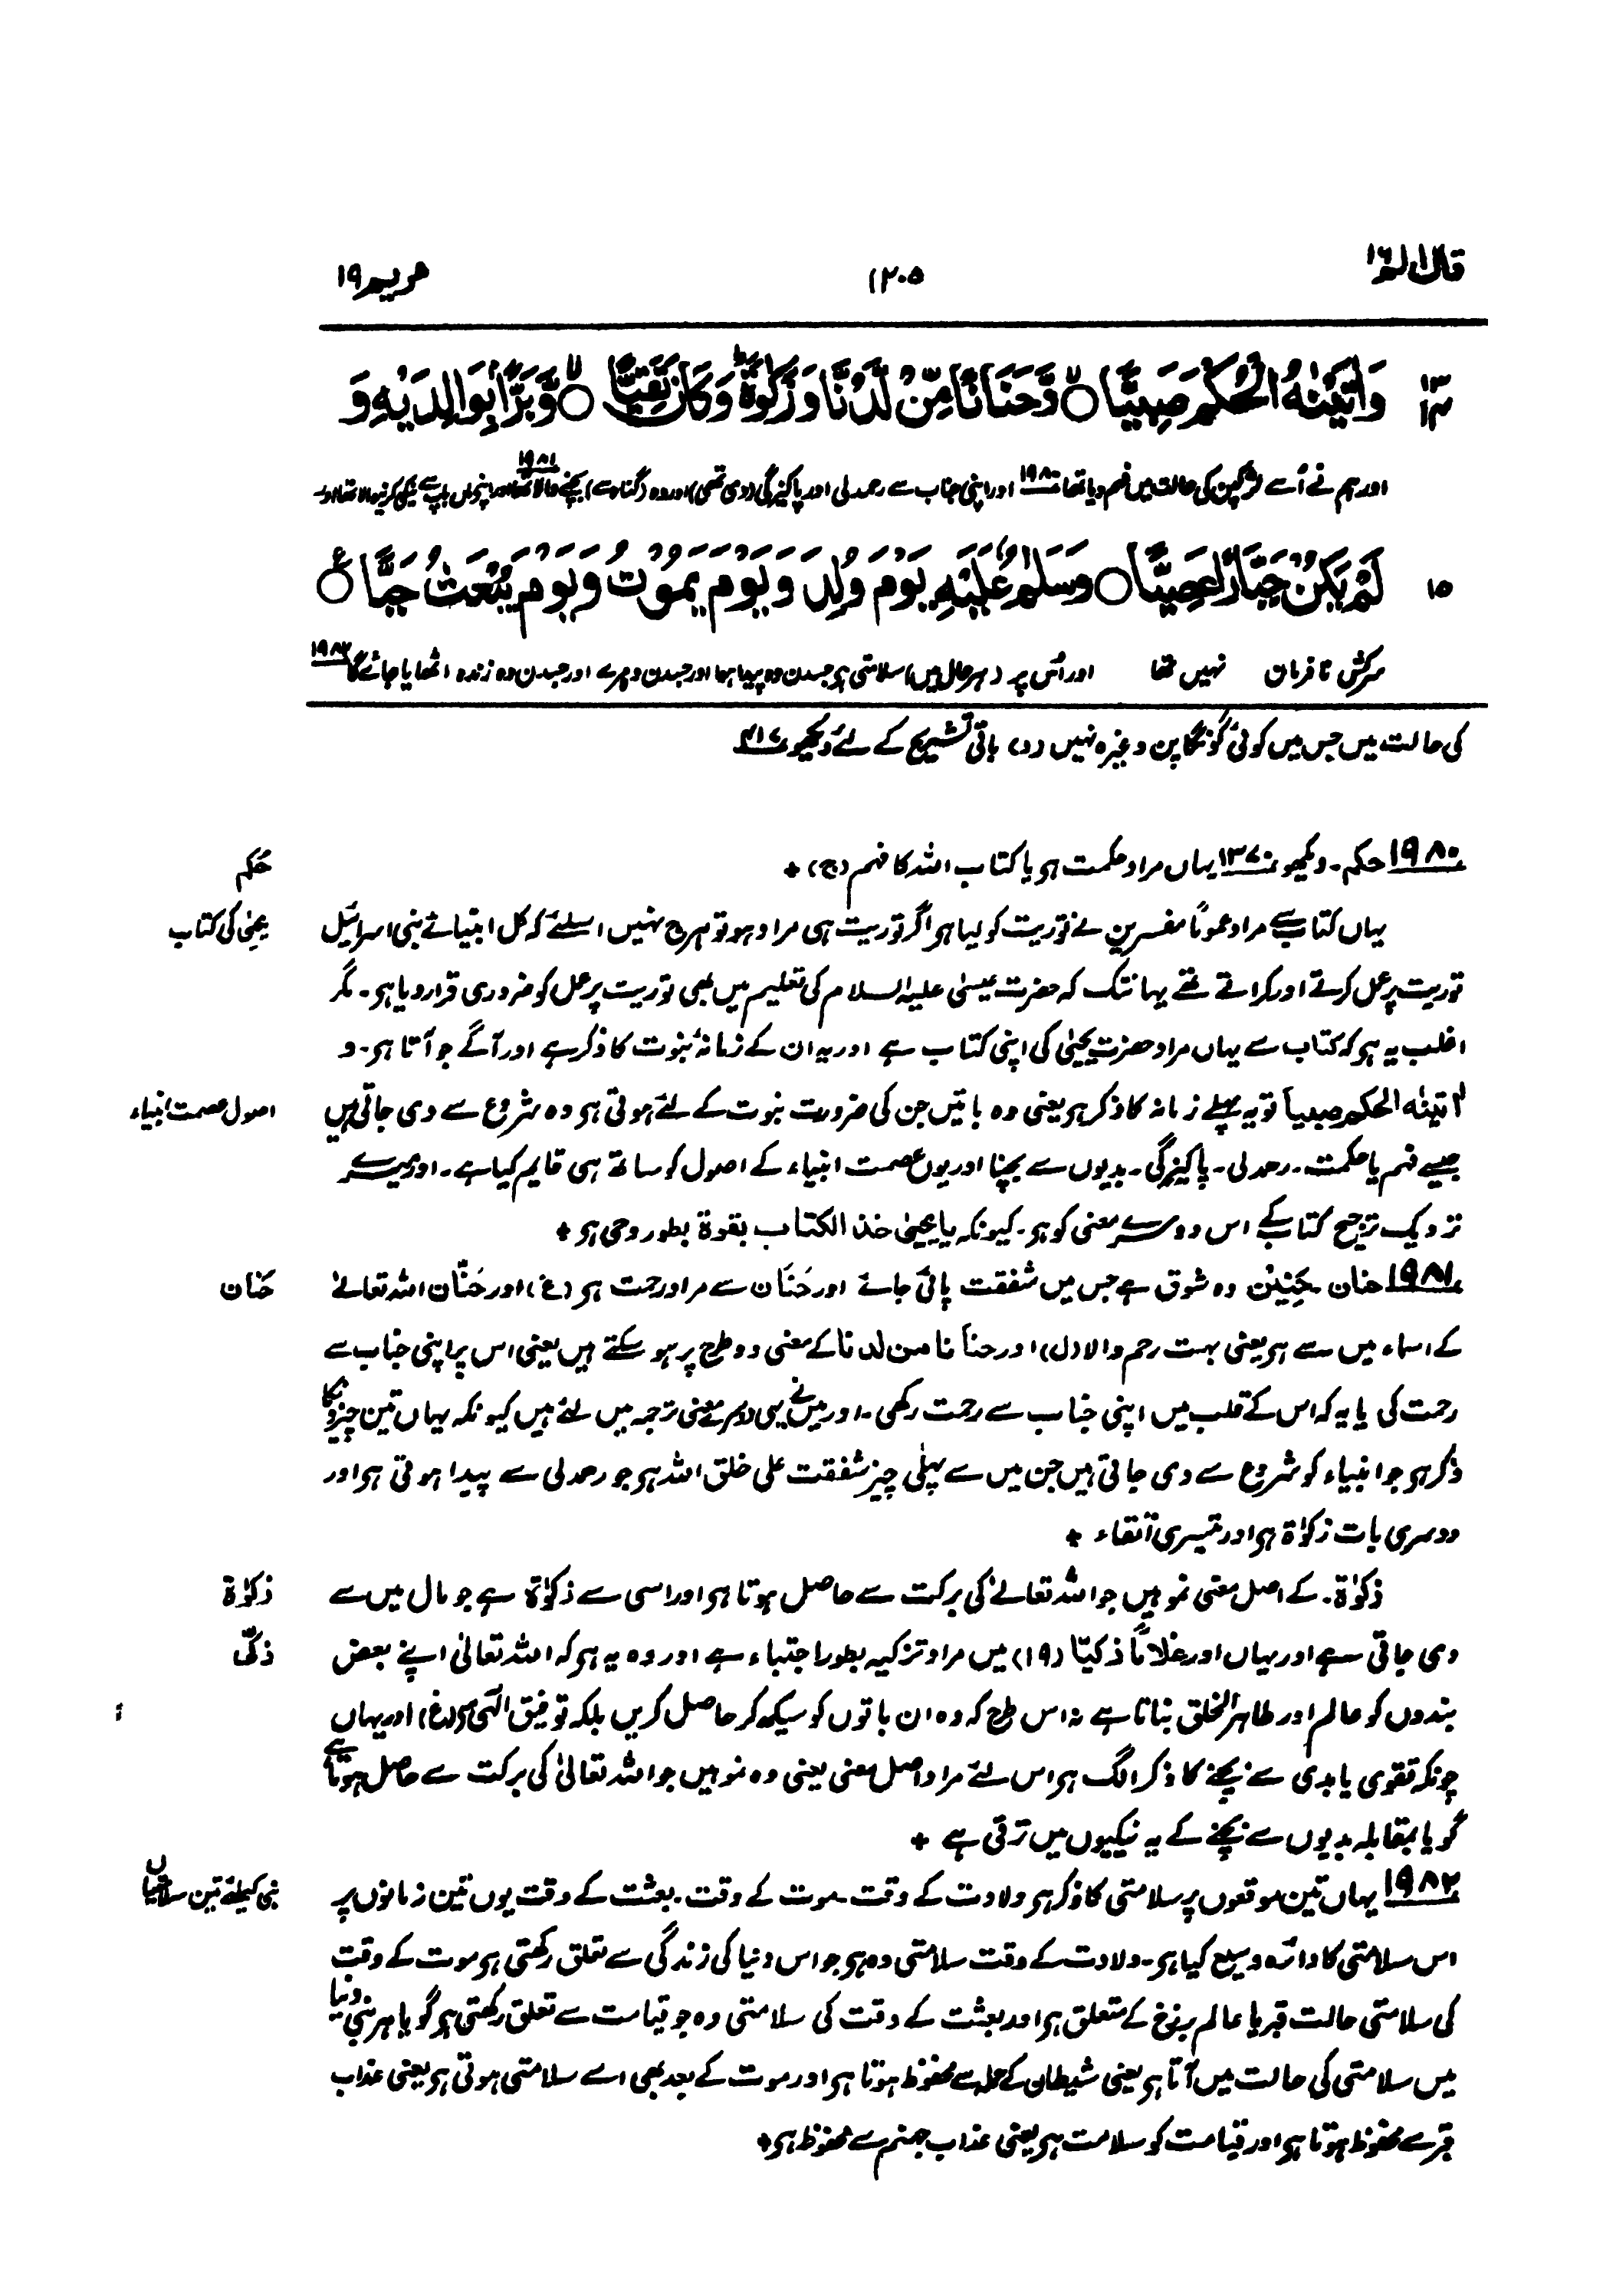 قال الم ١٦
١٢٠٥
مریم ١٩
١٣ ١٤ وَاٰتَيْنٰهُ الْحُكْمَ صَبِيًّا ۙ وَّحَنَانًا مِّنْ لَّدُنَّا وَزَكٰوةً ؕ وَكَانَ تَقِيًّا ۙ وَّبَرًّۢا بِوَالِدَيْهِ وَ
اور ہم نے اُسے لڑکپن کی حالت میں فہم دیا تھا ١٩٨٠ اور اپنی جناب سے رحمدلی اور پاکیزگی (دی تھی) اور وہ (گناہ سے) بچنے والا تھا ١٩٨١ اور اپنے ماں باپ سے نیکی کرنیوالا تھا اور
١٥ لَمْ يَكُنْ جَبَّارًا عَصِيًّا ۝ وَسَلٰمٌ عَلَيْهِ يَوْمَ وُلِدَ وَيَوْمَ يَمُوْتُ وَيَوْمَ يُبْعَثُ حَيًّا ۝ ع
سرکش نافرمان نہیں تھا اور اُس پر (ہر حال میں) سلامتی ہو جسدن وہ پیدا ہوا اور جسدن وہ مرے اور جسدن وہ زندہ اٹھایا جائے گا ١٩٨٢
کی حالت میں جس میں کوئی گونگا پن وغیرہ نہیں (د) باقی تشریح کے لئے دیکھو ٤١٧
١٩٨٠ حکم۔ دیکھو ١٣٧٠ یہاں مراد حکمت ہو یا کتاب اللہ کا فہم (ج) +
حُکم
یہاں کتاب سے مراد عموماً مفسرین نے توریت کو لیا ہو اگر توریت ہی مراد ہو تو ہرج نہیں اسلئے کہ کل انبیائے بنی اسرائیل
یحییٰ کی کتاب
توریت پر عمل کرتے اور کراتے تھے یہانتک کہ حضرت عیسیٰ علیہ السلام کی تعلیم میں بھی توریت پر عمل کو ضروری قرار دیا ہو۔ مگر
اغلب یہ ہو کہ کتاب سے یہاں مراد حضرت یحییٰ کی اپنی کتاب ہے اور یہ ان کے زمانۂ نبوت کا ذکر ہے اور آگے جو آتا ہو۔ و
اٰتینٰہ الحکم صبیاً تو یہ پہلے زمانہ کا ذکر ہو یعنی وہ باتیں جن کی ضرورت نبوت کے لئے ہوتی ہو وہ شروع سے دی جاتی ہیں
اصول عصمت انبیاء
جیسے فہم یا حکمت۔ رحمدلی۔ پاکیزگی۔ بدیوں سے بچنا اور یوں عصمت انبیاء کے اصول کو ساتھ ہی قایم کیا ہے۔ اور میرے
نزدیک ترجیح کتاب کے اس دوسرے معنی کو ہو۔ کیونکہ یا یحییٰ خذ الکتاب بقوۃ بطور وحی ہو +
١٩٨١ حنان حَنِیْن وہ شوق ہے جس میں شفقت پائی جائے اور حَنَان سے مراد رحمت ہو (غ) اور حَنَّان اللہ تعالےٰ
حَنان
کے اسماء میں سے ہو یعنی بہت رحم والا (ل) اور حنانا من لدنا کے معنی دو طرح پر ہو سکتے ہیں یعنی اس پر اپنی جناب سے
رحمت کی یا یہ کہ اس کے قلب میں اپنی جناب سے رحمت رکھی۔ اور میں نے یہی دوسرے معنی ترجمہ میں لئے ہیں کیونکہ یہاں تین چیزوں کا
ذکر ہو جو انبیاء کو شروع سے دی جاتی ہیں جن میں سے پہلی چیز شفقت علی خلق اللہ ہو جو رحمدلی سے پیدا ہوتی ہو اور
دوسری بات زکوٰۃ ہو اور تیسری اتقاء +
زکوٰۃ۔ کے اصل معنی نمو ہیں جو اللہ تعالےٰ کی برکت سے حاصل ہوتا ہو اور اسی سے زکوٰۃ ہے جو مال میں سے
زکوٰۃ
دی جاتی ہے اور یہاں اور غلامًا زکیّا (١٩) میں مراد تزکیہ بطور اجتباء ہے اور وہ یہ ہو کہ اللہ تعالیٰ اپنے بعض
زکیّ
بندوں کو عالم اور طاہر الخلق بناتا ہے نہ اس طرح کہ وہ ان باتوں کو سیکھ کر حاصل کریں بلکہ توفیق الٰہی سے (غ) اور یہاں
چونکہ تقویٰ یا بدی سے بچنے کا ذکر الگ ہو اس لئے مراد اصل معنی یعنی وہ نمو ہیں جو اللہ تعالیٰ کی برکت سے حاصل ہوتا ہے
گویا بمقابلہ بدیوں سے بچنے کے یہ نیکیوں میں ترقی ہے +
١٩٨٢ یہاں تین موقعوں پر سلامتی کا ذکر ہو ولادت کے وقت۔ موت کے وقت۔ بعثت کے وقت یوں تین زمانوں پر
نبی کیلئے تین سلامتیاں
اس سلامتی کا دائرہ وسیع کیا ہو۔ ولادت کے وقت سلامتی وہ ہو جو اس دنیا کی زندگی سے تعلق رکھتی ہو موت کے وقت
کی سلامتی حالت قبر یا عالم برزخ کے متعلق ہو اور بعثت کے وقت کی سلامتی وہ جو قیامت سے تعلق رکھتی ہو گویا ہر نبی دنیا
میں سلامتی کی حالت میں آتا ہو یعنی شیطان کے حملہ سے محفوظ ہوتا ہو اور موت کے بعد بھی اسے سلامتی ہوتی ہو یعنی عذاب
قبر سے محفوظ ہوتا ہو اور قیامت کو سلامت ہو یعنی عذاب جہنم سے محفوظ ہو +